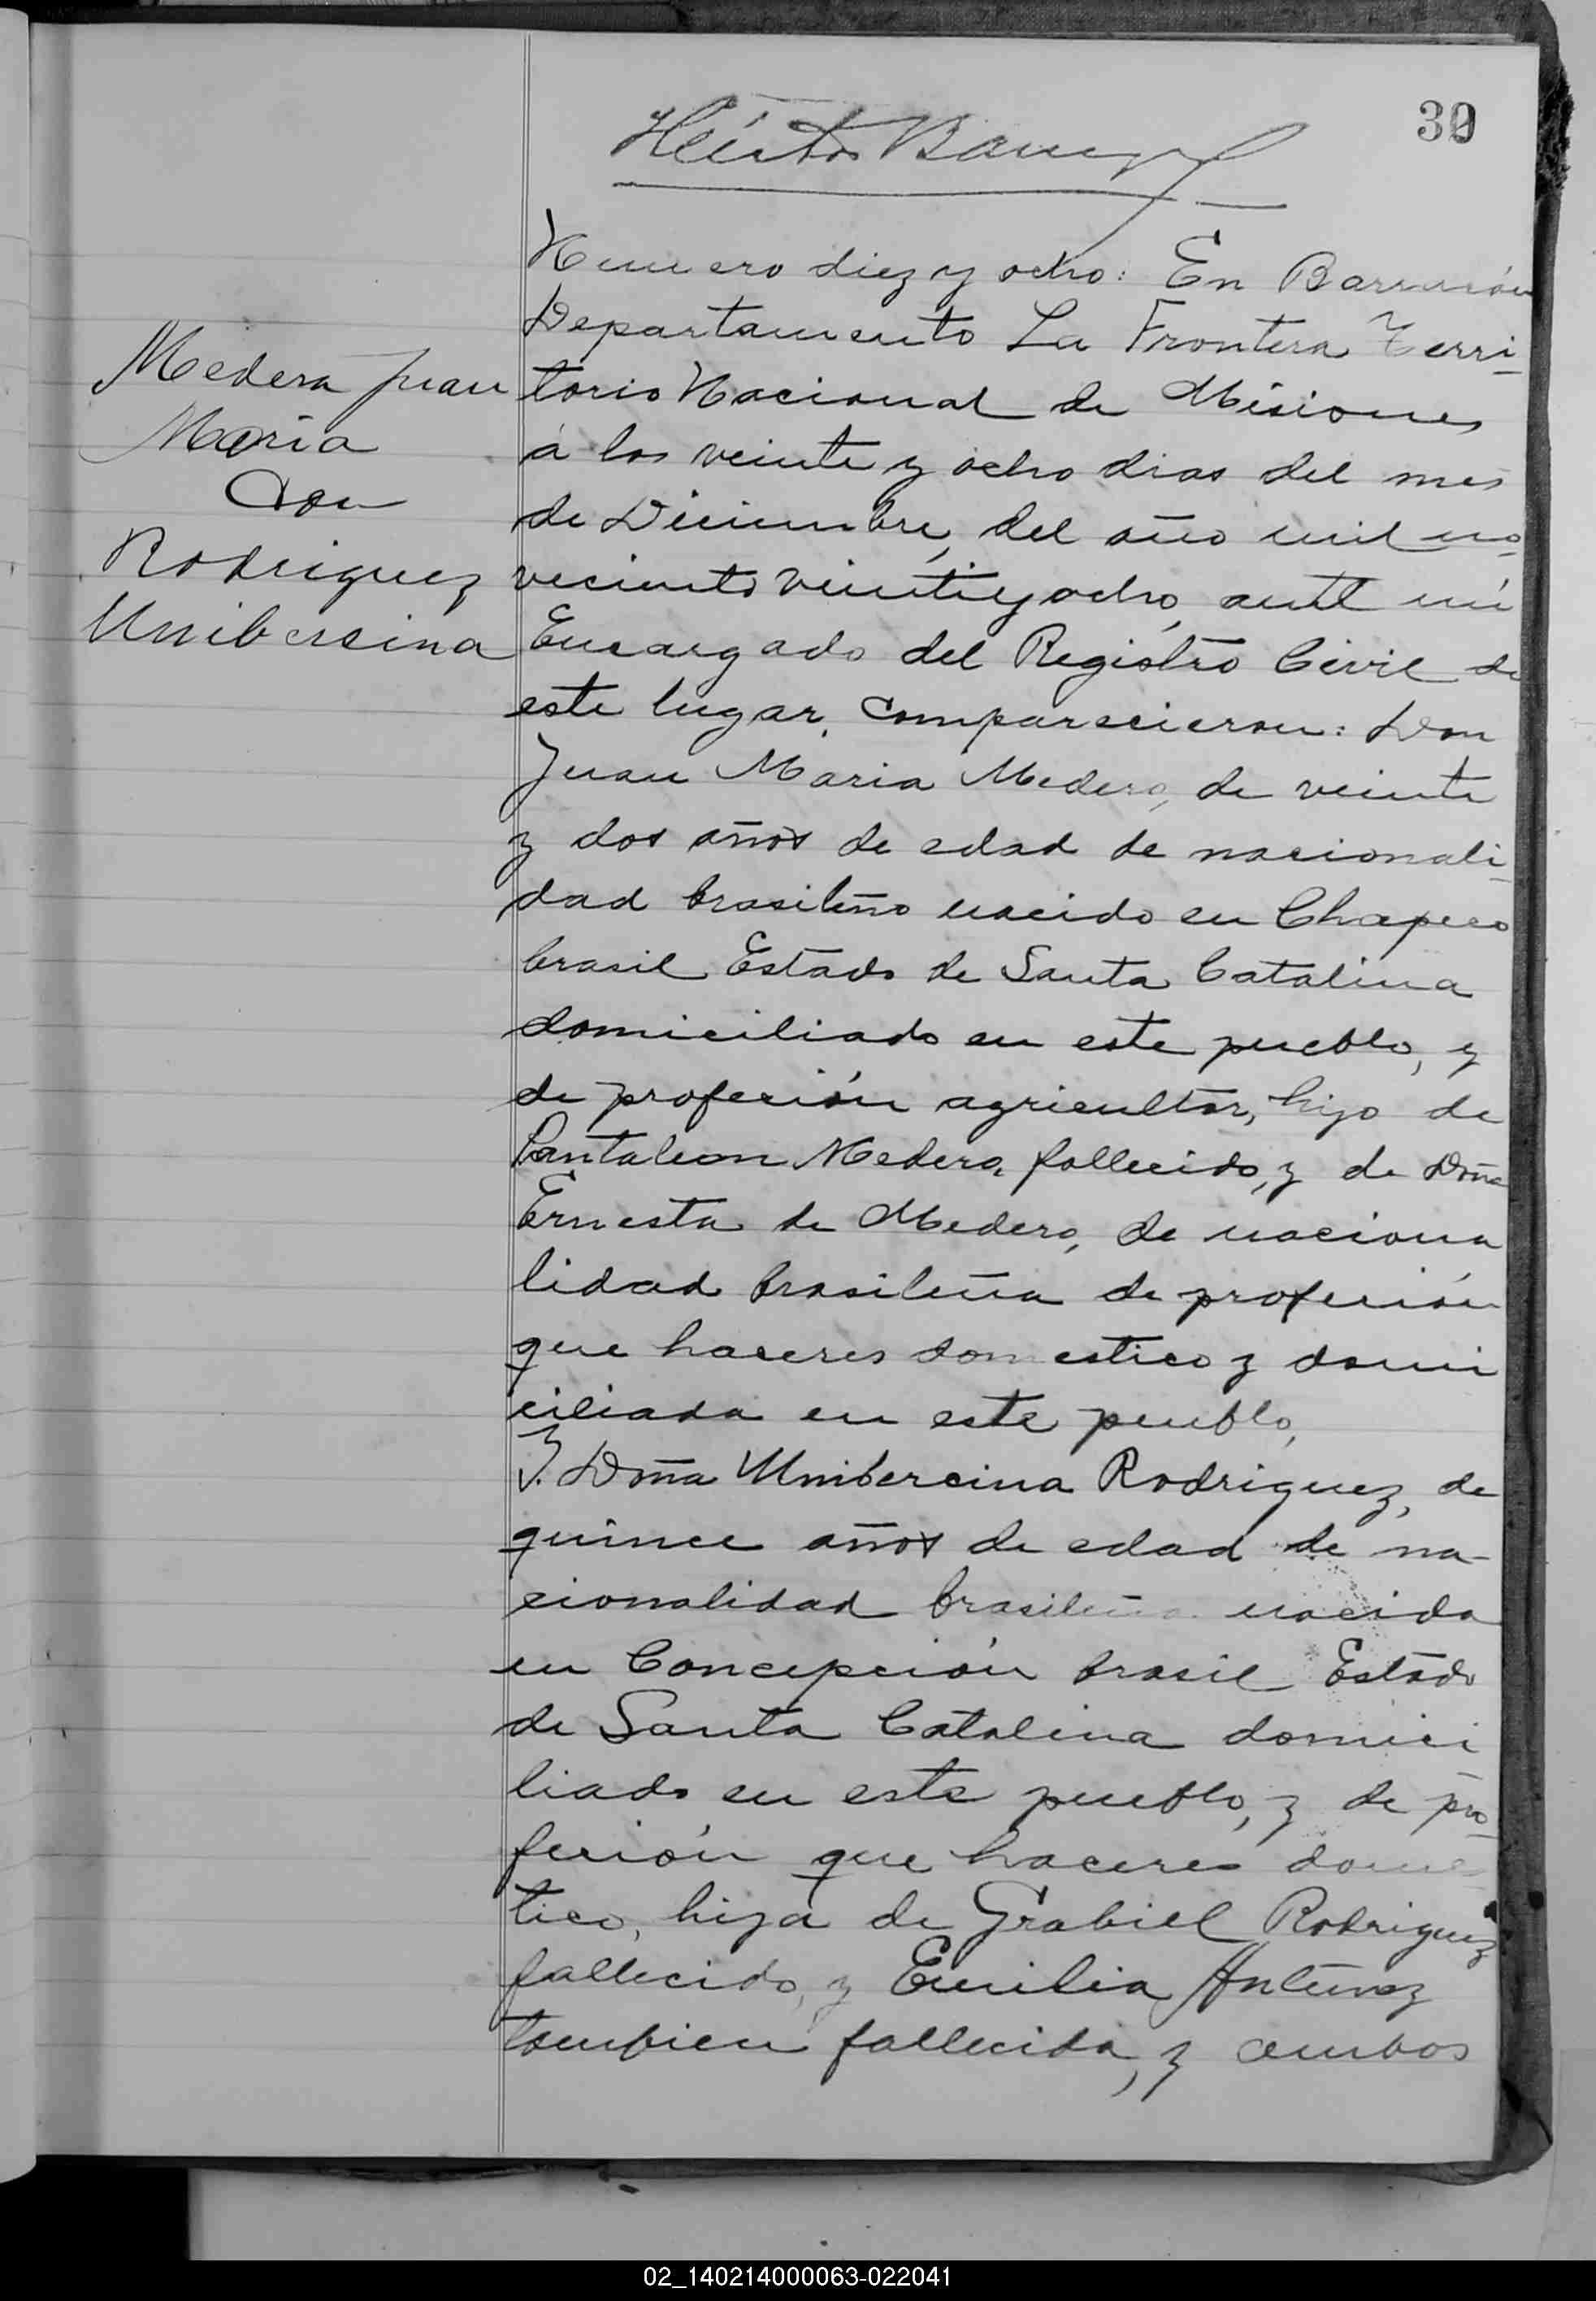 30
Héctor
Numero diez y ocho: En Barracón
Departamento La Frontera Terri-
torio Nacional de Misiones
á los veinte y ocho dias del mes
de Diciembre, del año mil no-
veciento veintiyocho, ante mi
Encargado del Registro Civil de
este lugar, comparecieron: Don
Juan Maria Medero, de veinte
y dos años de edad de nacionali-
dad brasileño nacido en Chapeco
brasil Estado de Santa Catalina
domiciliado en este pueblo, y
de profeción agricultor, hijo de
Pantaleon Medero, fallecido, y de Doña
Ernesta de Medero, de naciona
lidad brasileña de profeción
que haceres domestico y domi
ciliada en este pueblo,
Y. Doña Unibercina Rodriguez, de
quince años de edad de na-
cionalidad brasileña nacida
en Concepción brasil Estado
de Santa Catalina domici
liado en este pueblo, y de pro-
feción que haceres domes
tico, hija de Grabiel Rodriguez
fallecido, y Emilia Antunez
tambien fallecida, y ambos
Medera Juan
Maria
Con
Rodriguez
Unibersina
02_140214000063-022041